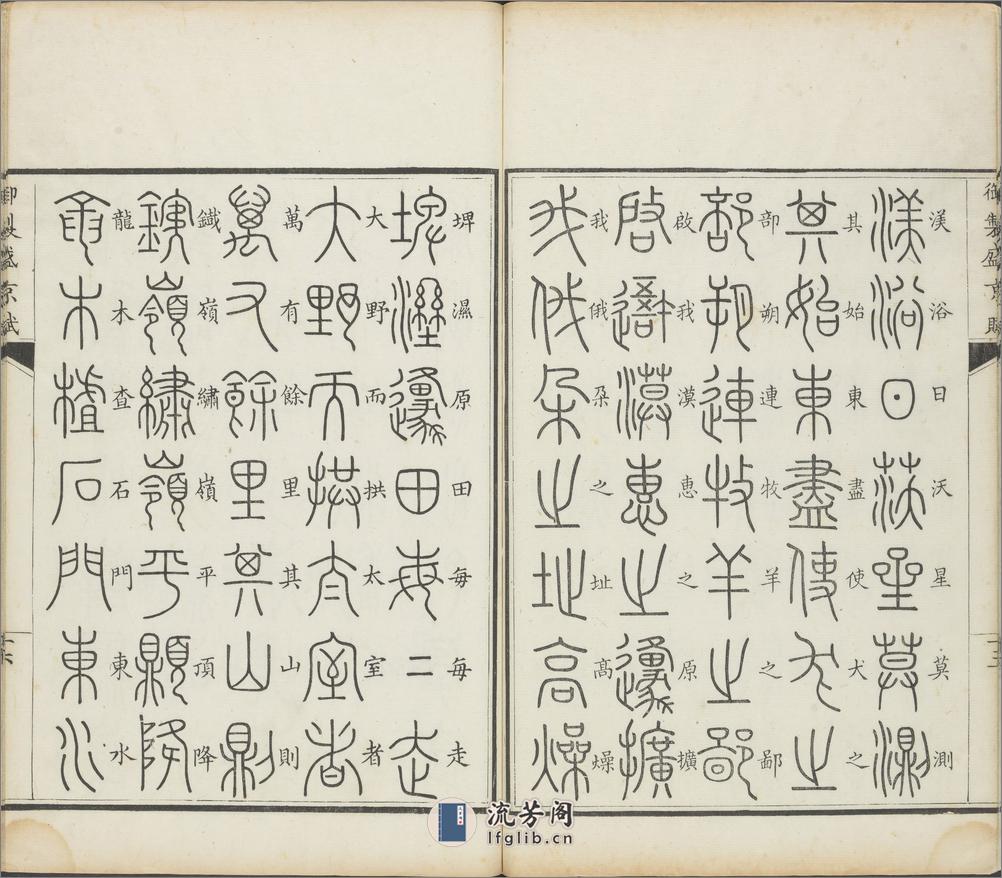 御製盛京賦
渼浴日沃星莫測
其始東盡使犬之
部朔連牧羊之鄙
啟我漠惠之原擴
我俄朶之址高燥
埤濕原田每每走
大野而拱太室者
萬有餘里其山則
鐵嶺繡嶺平頂降
龍木查石門東水
御製盛京賦
流芳阁
lfglib.cn